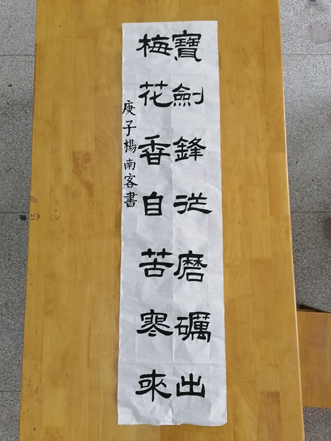 寶劍鋒從磨礪出
梅花香自苦寒來
庚子楊南客書